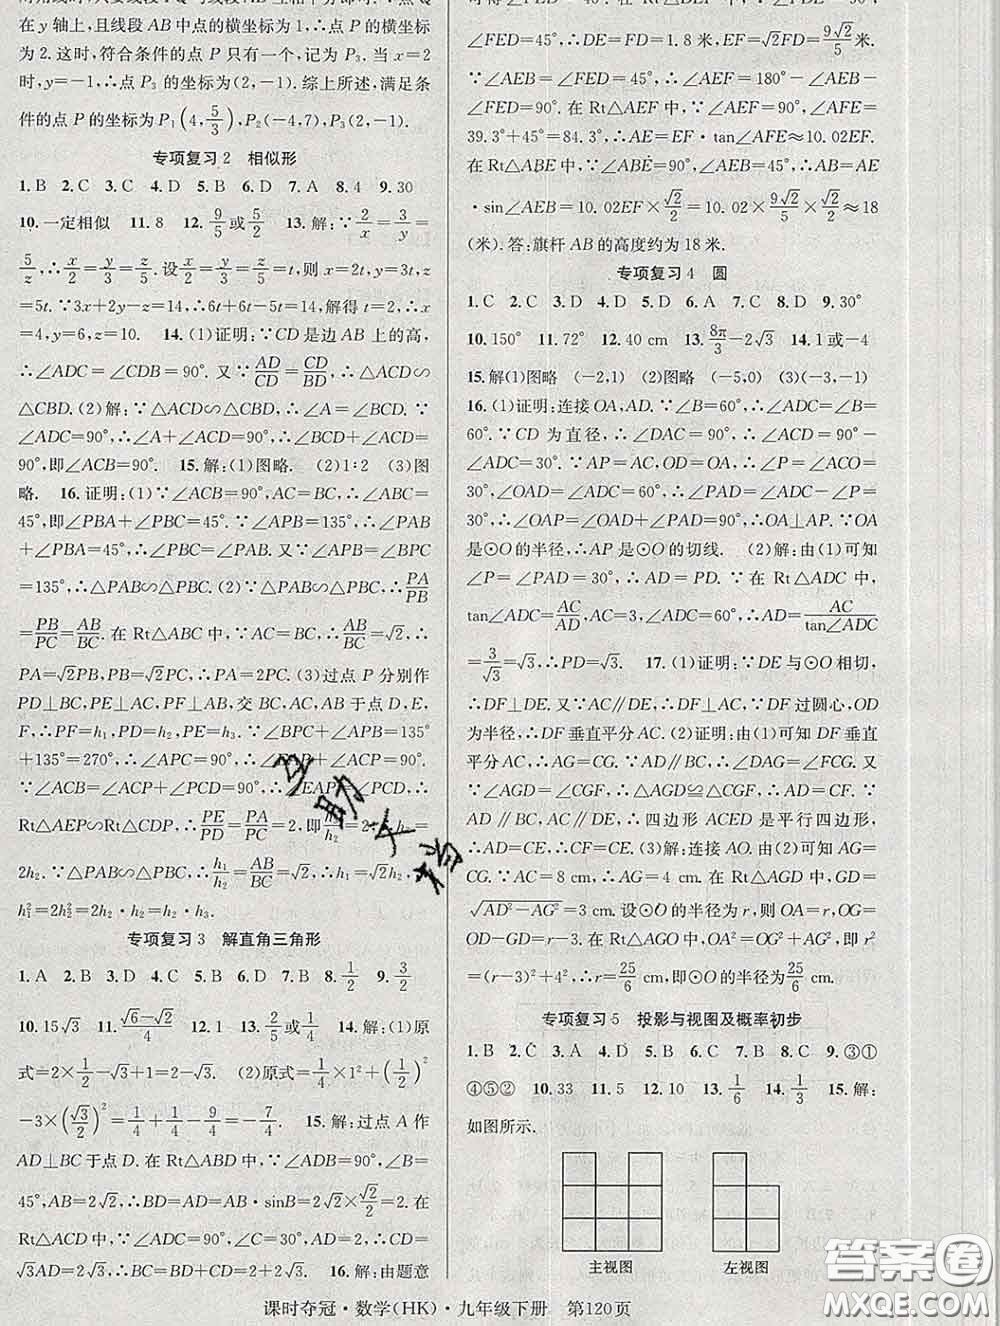 在y轴上,且线段AB中点的横坐标为1,∴点P的横坐标
为2.这时,符合条件的点P只有一个,记为P₃.当x=2
时,y=-1,∴点P₃的坐标为(2,-1).综上所述,满足条
件的点P的坐标为P₁(4,5/3),P₂(-4,7),P₃(2,-1).
专项复习2 相似形
1.B 2.C 3.C 4.D 5.B 6.D 7.A 8.4 9.30
10.一定相似 11.8 12.9/5或5/2 13.解:∵2/x=3/y=
5/z,∴x/2=y/3=z/5.设x/2=y/3=z/5=t,则x=2t,y=3t,z=
5t.∵3x+2y-z=14,∴6t+6t-5t=14,解得t=2.∴x
=4,y=6,z=10. 14.(1)证明:∵CD是边AB上的高,
∴∠ADC=∠CDB=90°.又∵AD/CD=CD/BD,∴△ACD∽
△CBD.(2)解:∵△ACD∽△CBD,∴∠A=∠BCD.∵
∠ADC=90°,∴∠A+∠ACD=90°,∴∠BCD+∠ACD=
90°,即∠ACB=90°. 15.解:(1)图略. (2)1:2 (3)图
略. 16.证明:(1)∵∠ACB=90°,AC=BC,∴∠ABC=
45°,即∠PBA+∠PBC=45°.∵∠APB=135°,∴∠PAB
+∠PBA=45°,∴∠PBC=∠PAB.又∵∠APB=∠BPC
=135°,∴△PAB∽△PBC.(2)∵△PAB∽△PBC,∴PA/PB
=PB/PC=AB/BC.在Rt△ABC中,∵AC=BC,∴AB/BC=√2,∴
PA=√2PB,PB=√2PC,∴PA=2PC.(3)过点P分别作
PD⊥BC,PE⊥AC,PF⊥AB,交BC,AC,AB于点D,E,
F,∴PF=h₁,PD=h₂,PE=h₃.∵∠BPC+∠APB=135°
+135°=270°,∴∠APC=90°,∴∠EAP+∠ACP=90°.
∵∠ACP+∠PCD=90°,∴∠EAP=∠PCD,∴
Rt△AEP∽Rt△CDP,∴PE/PD=PA/PC=2.即h₃/h₂=2,∴h₃=
2h₂.∵△PAB∽△PBC,∴h₁/h₂=AB/BC=√2,∴h₁=√2h₂,∴
h₁²=2h₂²=2h₂·h₂=h₂·h₃.
专项复习3 解直角三角形
1.A 2.D 3.D 4.C 5.B 6.D 7.B 8.1/2 9.3/2
10.15√3 11.(√6-√2)/4 12.1 13.2/5或1/4 14.解:(1)原
式=2×1/2-√3+1=2-√3. (2)原式=1/4×1²+(1/2)²
-3×(√3/2)²=1/4+1/4-9/4=-7/4. 15.解:过点A作
AD⊥BC于点D.在Rt△ABD中,∠ADB=90°,∠B=
45°,AB=2√2,∴BD=AD=AB·sinB=2√2×√2/2=2.在
Rt△ACD中,∠ADC=90°,∠C=30°,AD=2,∴CD=
√3AD=2√3,∴BC=BD+CD=2+2√3. 16.解:由题意
∠FED=45°,∴DE=FD=1.8米,EF=√2FD=9√2/5米.
∵∠AEB=∠FED=45°,∴∠AEF=180°-∠AEB-
∠FED=90°.在Rt△AEF中,∵∠AEF=90°,∠AFE=
39.3°+45°=84.3°,∴AE=EF·tan∠AFE≈10.02EF.
在Rt△ABE中,∵∠ABE=90°,∠AEB=45°,∴AB=AE
·sin∠AEB=10.02EF×√2/2=10.02×9√2/5×√2/2≈18
(米).答:旗杆AB的高度约为18米.
专项复习4 圆
1.C 2.B 3.D 4.D 5.D 6.A 7.C 8.D 9.30°
10.150° 11.72° 12.40 cm 13.8π/3-2√3 14.1或-4
15.解(1)图略 (-2,1) (2)图略 (-5,0) (3)(-3,-1)
16.(1)证明:连接OA,AD.∵∠B=60°,∴∠ADC=∠B=
60°.∵CD为直径,∴∠DAC=90°,∴∠ACO=90°-
∠ADC=30°.∵AP=AC,OD=OA,∴∠P=∠ACO=
30°,∠OAD=∠ADC=60°,∴∠PAD=∠ADC-∠P=
30°,∴∠OAP=∠OAD+∠PAD=90°,∴OA⊥AP.∵OA
是⊙O的半径,∴AP是⊙O的切线.(2)解:由(1)可知
∠P=∠PAD=30°,∴AD=PD.∵在Rt△ADC中,
tan∠ADC=AC/AD,AC=3,∠ADC=60°,∴AD=AC/tan∠ADC
=3/√3=√3,∴PD=√3. 17.(1)证明:∵DE与⊙O相切,
∴DF⊥DE.又AC∥DE,∴DF⊥AC.∵DF过圆心,OD
为半径,∴DF垂直平分AC.(2)证明:由(1)可知DF垂直
平分AC,∴AG=GC.∵AD∥BC,∴∠DAG=∠FCG.
又∵∠AGD=∠CGF,∴△AGD≌△CGF,∴AD=CF.∵
AD∥BC,AC∥DE,∴四边形ACED是平行四边形,
∴AD=CE,∴CF=CE.(3)解:连接AO.由(2)可知AG=
CG.∵AC=8 cm,∴AG=4 cm.在Rt△AGD中,GD=
√(AD²-AG²)=3 cm.设⊙O的半径为r,则OA=r,OG=
r-3.在Rt△AGO中,OA²=OG²+AG²,即r²
=(r-3)²+4²,∴r=25/6 cm,即⊙O的半径为25/6 cm.
专项复习5 投影与视图及概率初步
1.B 2.C 3.A 4.D 5.B 6.D 7.B 8.C 9.③①
④⑤② 10.33 11.5 12.10 13.1/6 14.1/3 15.解:
如图所示.
主视图 左视图
课时夺冠·数学(HK)·九年级下册 第120页
答案圈
MXQE.COM